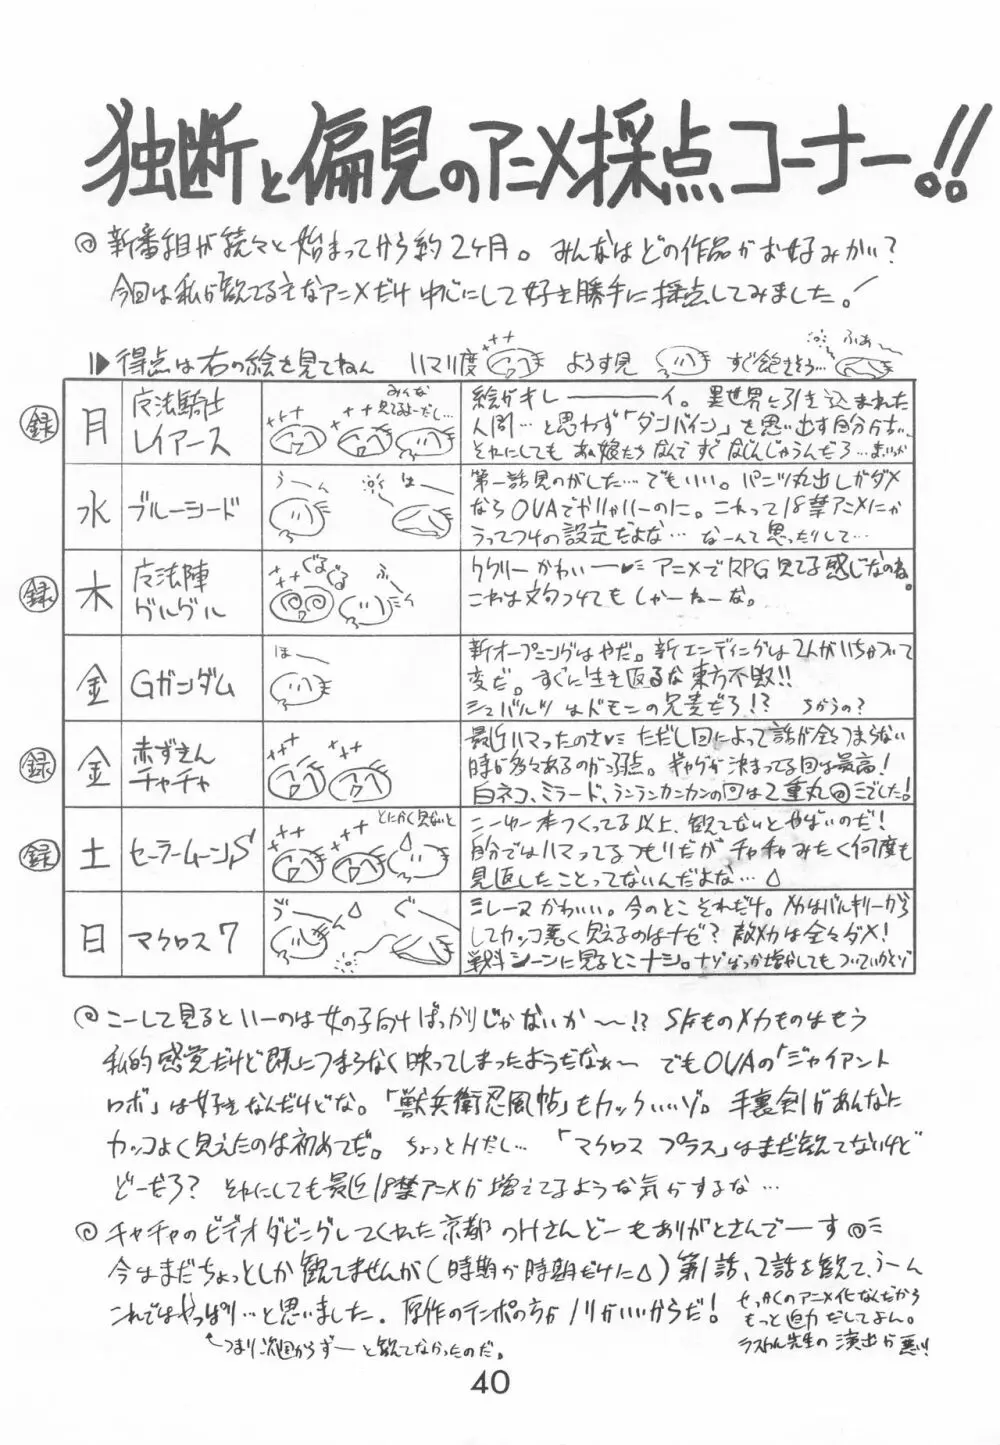 独断と偏見のアニメ採点コーナー!!
◎新番組が続々と始まってから約2ケ月。みんなはどの作品がお好みかい?
今回は私が観てる主なアニメだけ中心にして好き勝手に採点してみました!
得点は右の絵を見てねん ハマリ度 ようす見 すぐ飽きそう… ふぁ〜
録 月 魔法騎士レイアース
みんな見てるよーだし…
絵がキレ――――イ。異世界に引き込まれた
人間…と思わず「ダンバイン」を思い出す自分が古い。
それにしてもあの娘たちなんですぐなじんじゃうんだろ…まいっか
水 ブルーシード
うーん はー
第一話見のがした…でもいい。パンツ丸出しがダメ
ならOVAでやりゃいーのに。これって18禁アニメにか
うってつけの設定だよな… なーんて思ったりして…
録 木 魔法陣グルグル
ぐるぐる ふー
ククリーかわいー♥ アニメでRPG見てる感じなのね。
これは文句つけてもしゃーねーな。
金 Gガンダム
ほー
新オープニングはやだ。新エンディングは2人がいちゃついて
変だ。すぐに生き返るな東方不敗!!
シュバルツはドモンの兄貴だろ!? ちがうの?
録 金 赤ずきんチャチャ
最近ハマったのさ♥ ただし回によって話が全々つまらない
時が多々あるのが弱点。ギャグが決まってる回は最高!
白ネコ、ミラード、ランランカンカンの回は2重丸◎でした!
録 土 セーラームーンS
とにかく見ないと
こーゆー本つくってる以上、観てないとやばいのだ!
自分ではハマってるつもりだがチャチャみたく何度も
見返したことってないんだよな…
日 マクロス7
ぶー ぐー
ミレーヌかわいい。今のとこそれだけ。メカはバルキリーからし
てカッコ悪く見えるのはナゼ? 敵メカは全々ダメ!
戦闘シーンに見るとこナシ。ナゾばっか増やしてもついていかんぞ
◎こーして見るといーのは女の子向けばっかりじゃないか〜!? SFものメカものはもう
私的感覚だけど既につまらなく映ってしまったようだなぁ〜 でもOVAの「ジャイアント
ロボ」は好きなんだけどな。「獣兵衛忍風帖」もカッケいいゾ。手裏剣があんなに
カッコよく見えたのは初めてだ。ちょっとHだし… 「マクロスプラス」はまだ観てないけど
どーだろ? それにしても最近18禁アニメが増えてるような気がするな…
◎チャチャのビデオダビングしてくれた京都のHさんどーもありがとさんでーす◎
今はまだちょっとしか観てませんが(時期が時期だけに)第1話、2話を観て、うーん
これではやっぱり…と思いました。原作のテンポの方がノリがいいからだ!
せっかくのアニメ化なんだから
もっと迫力だしてよん。
演出が悪い!
つまり次週からずーと観てなかったのだ。
40